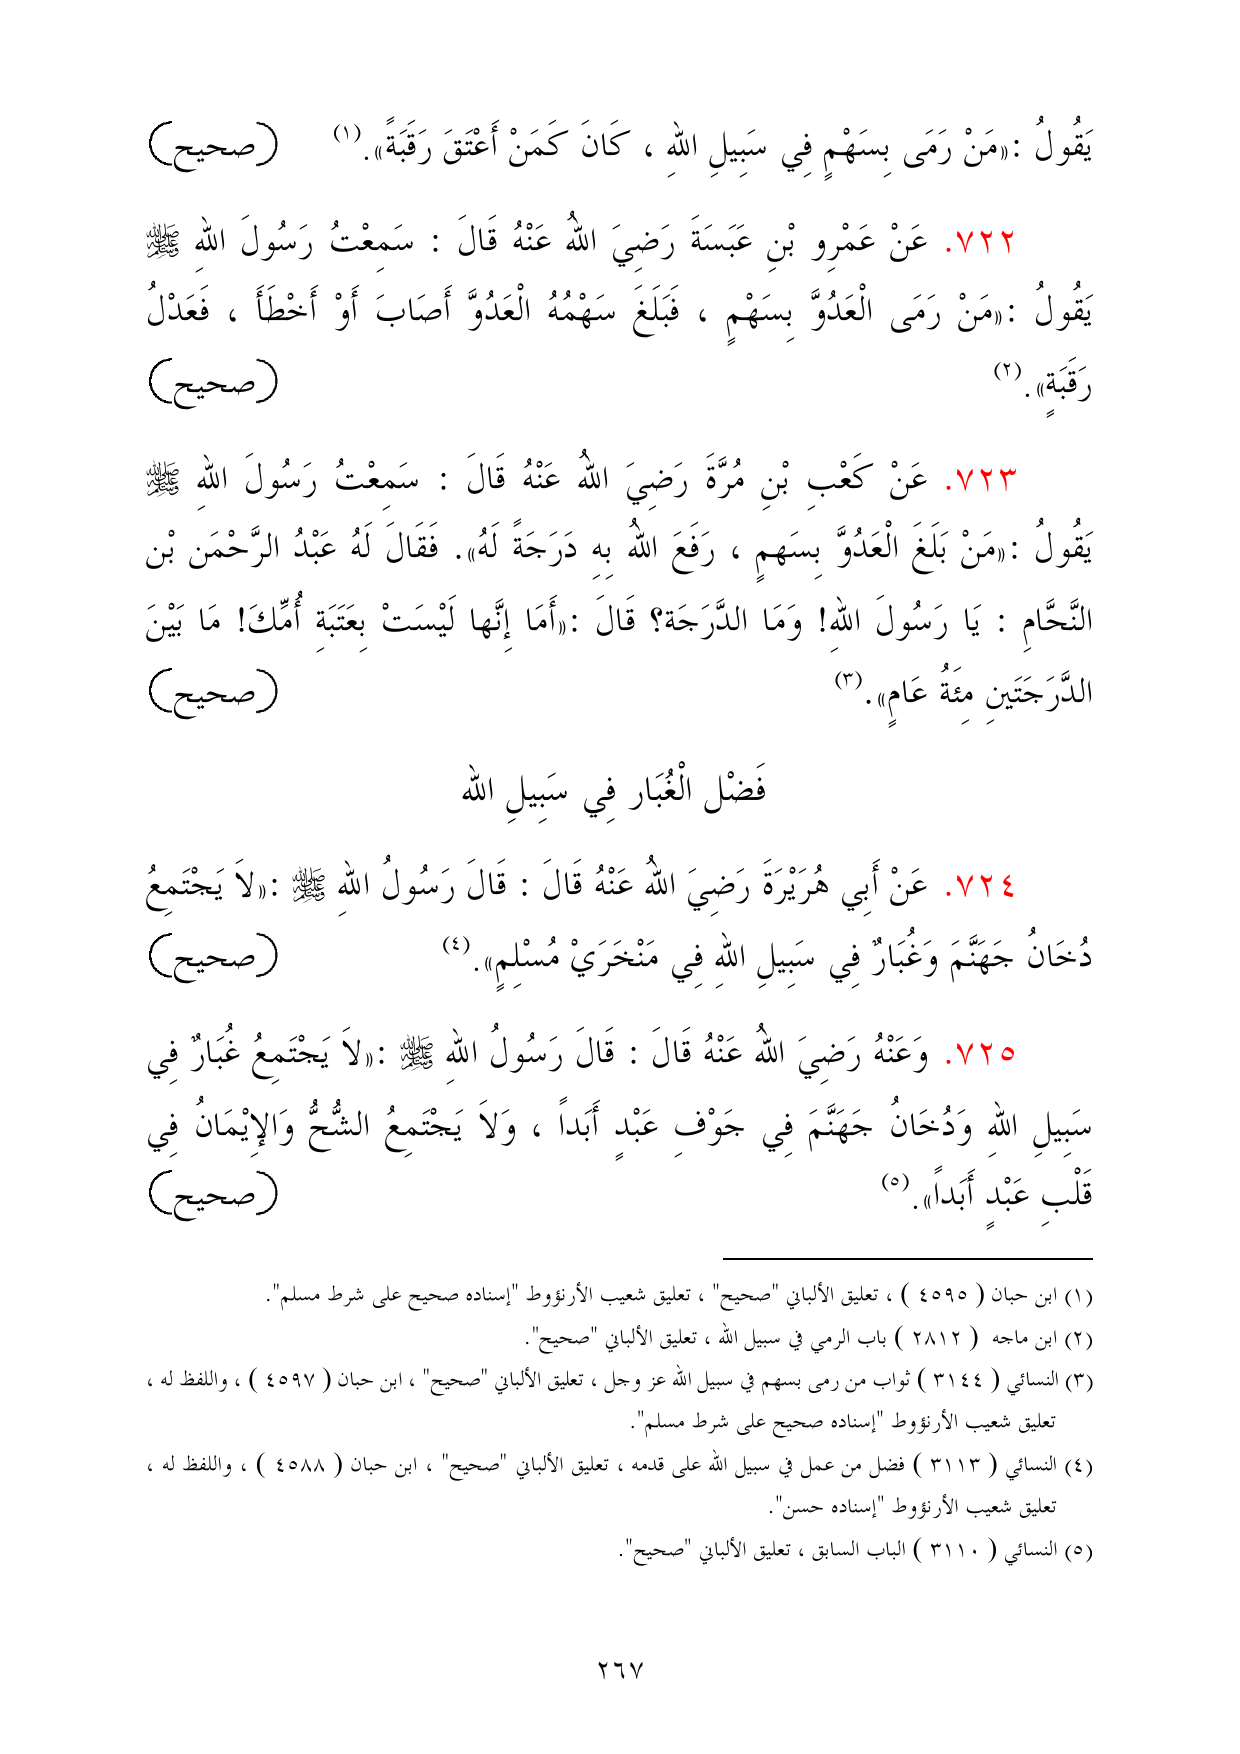 يَقُولُ :«مَنْ رَمَى بِسَهْمٍ فِي سَبِيلِ اللهِ ، كَانَ كَمَنْ أَعْتَقَ رَقَبَةً».(١) (صحيح)
٧٢٢. عَنْ عَمْرِو بْنِ عَبَسَةَ رَضِيَ اللهُ عَنْهُ قَالَ : سَمِعْتُ رَسُولَ اللهِ ﷺ
يَقُولُ :«مَنْ رَمَى الْعَدُوَّ بِسَهْمٍ ، فَبَلَغَ سَهْمُهُ الْعَدُوَّ أَصَابَ أَوْ أَخْطَأَ ، فَعَدْلُ
رَقَبَةٍ».(٢) (صحيح)
٧٢٣. عَنْ كَعْبِ بْنِ مُرَّةَ رَضِيَ اللهُ عَنْهُ قَالَ : سَمِعْتُ رَسُولَ اللهِ ﷺ
يَقُولُ :«مَنْ بَلَغَ الْعَدُوَّ بِسَهمٍ ، رَفَعَ اللهُ بِهِ دَرَجَةً لَهُ». فَقَالَ لَهُ عَبْدُ الرَّحْمَن بْن
النَّحَّامِ : يَا رَسُولَ اللهِ! وَمَا الدَّرَجَة؟ قَالَ :«أَمَا إِنَّها لَيْسَتْ بِعَتَبَةِ أُمِّكَ! مَا بَيْنَ
الدَّرَجَتَينِ مِئَةُ عَامٍ».(٣) (صحيح)
فَضْل الْغُبَار فِي سَبِيلِ الله
٧٢٤. عَنْ أَبِي هُرَيْرَةَ رَضِيَ اللهُ عَنْهُ قَالَ : قَالَ رَسُولُ اللهِ ﷺ :«لاَ يَجْتَمِعُ
دُخَانُ جَهَنَّمَ وَغُبَارٌ فِي سَبِيلِ اللهِ فِي مَنْخَرَيْ مُسْلِمٍ».(٤) (صحيح)
٧٢٥. وَعَنْهُ رَضِيَ اللهُ عَنْهُ قَالَ : قَالَ رَسُولُ اللهِ ﷺ :«لاَ يَجْتَمِعُ غُبَارٌ فِي
سَبِيلِ اللهِ وَدُخَانُ جَهَنَّمَ فِي جَوْفِ عَبْدٍ أَبَداً ، وَلاَ يَجْتَمِعُ الشُّحُّ وَالإِيْمَانُ فِي
قَلْبِ عَبْدٍ أَبَداً».(٥) (صحيح)
(١) ابن حبان ( ٤٥٩٥ ) ، تعليق الألباني "صحيح" ، تعليق شعيب الأرنؤوط "إسناده صحيح على شرط مسلم".
(٢) ابن ماجه ( ٢٨١٢ ) باب الرمي في سبيل الله ، تعليق الألباني "صحيح".
(٣) النسائي ( ٣١٤٤ ) ثواب من رمى بسهم في سبيل الله عز وجل ، تعليق الألباني "صحيح" ، ابن حبان ( ٤٥٩٧ ) ، واللفظ له ،
تعليق شعيب الأرنؤوط "إسناده صحيح على شرط مسلم".
(٤) النسائي ( ٣١١٣ ) فضل من عمل في سبيل الله على قدمه ، تعليق الألباني "صحيح" ، ابن حبان ( ٤٥٨٨ ) ، واللفظ له ،
تعليق شعيب الأرنؤوط "إسناده حسن".
(٥) النسائي ( ٣١١٠ ) الباب السابق ، تعليق الألباني "صحيح".
٢٦٧